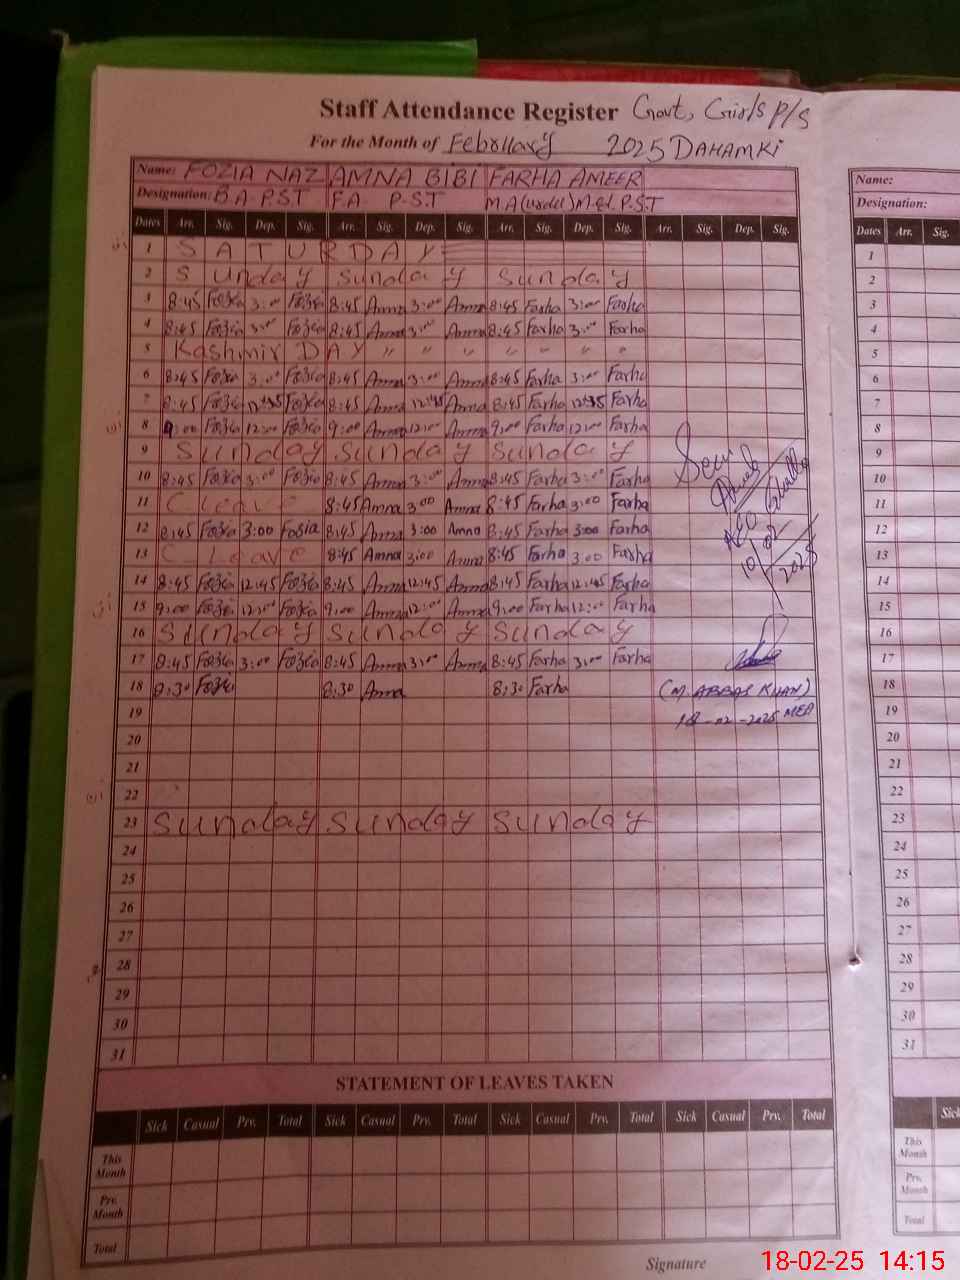 Staff Attendance Register Govt, Girls P/S
For the Month of February 2025 DAHAMKI
Name: FOZIA NAZ AMNA BIBI FARHA AMEER
Designation: B.A-P.S.T F.A P-S.T M A (Urdu) M.Ed. P.S.T
Dates Arr. Sig. Dep. Sig. Arr. Sig. Dep. Sig. Arr. Sig. Dep. Sig. Arr. Sig. Dep. Sig.
1 SATURDAY
2 Sunday Sunday Sunday
3 8:45 Fozia 3:00 Fozia 8:45 Amna 3:00 Amna 8:45 Farha 3:00 Farha
4 8:45 Fozia 3:00 Fozia 8:45 Amna 3:00 Amna 8:45 Farha 3:00 Farha
5 Kashmir DAY " " " " " " "
6 8:45 Fozia 3:00 Fozia 8:45 Amna 3:00 Amna 8:45 Farha 3:00 Farha
7 8:45 Fozia 12:45 Fozia 8:45 Amna 12:45 Amna 8:45 Farha 12:45 Farha
8 9:00 Fozia 12:00 Fozia 9:00 Amna 12:00 Amna 9:00 Farha 12:00 Farha
9 Sunday Sunday Sunday
10 8:45 Fozia 3:00 Fozia 8:45 Amna 3:00 Amna 8:45 Farha 3:00 Farha
11 C Leave 8:45 Amna 3:00 Amna 8:45 Farha 3:00 Farha
12 8:45 Fozia 3:00 Fozia 8:45 Amna 3:00 Amna 8:45 Farha 3:00 Farha
13 C Leave 8:45 Amna 3:00 Amna 8:45 Farha 3:00 Farha
14 8:45 Fozia 12:45 Fozia 8:45 Amna 12:45 Amna 8:45 Farha 12:45 Farha
15 9:00 Fozia 12:00 Fozia 9:00 Amna 12:00 Amna 9:00 Farha 12:00 Farha
16 Sunday Sunday Sunday
17 8:45 Fozia 3:00 Fozia 8:45 Amna 3:00 Amna 8:45 Farha 3:00 Farha
18 8:30 Fozia 8:30 Amna 8:30 Farha
19
20
21
22
23 Sunday Sunday Sunday
24
25
26
27
28
29
30
31
Seen
AEO
10/02/2025
(M. ABBAS KHAN)
18-02-2025 MEA
STATEMENT OF LEAVES TAKEN
Sick Casual Prv. Total Sick Casual Prv. Total Sick Casual Prv. Total Sick Casual Prv. Total
This Month
Prv. Month
Total
Signature
Name:
Designation:
Dates Arr. Sig.
1
2
3
4
5
6
7
8
9
10
11
12
13
14
15
16
17
18
19
20
21
22
23
24
25
26
27
28
29
30
31
Sick
This Month
Prv. Month
Total
18-02-25 14:15